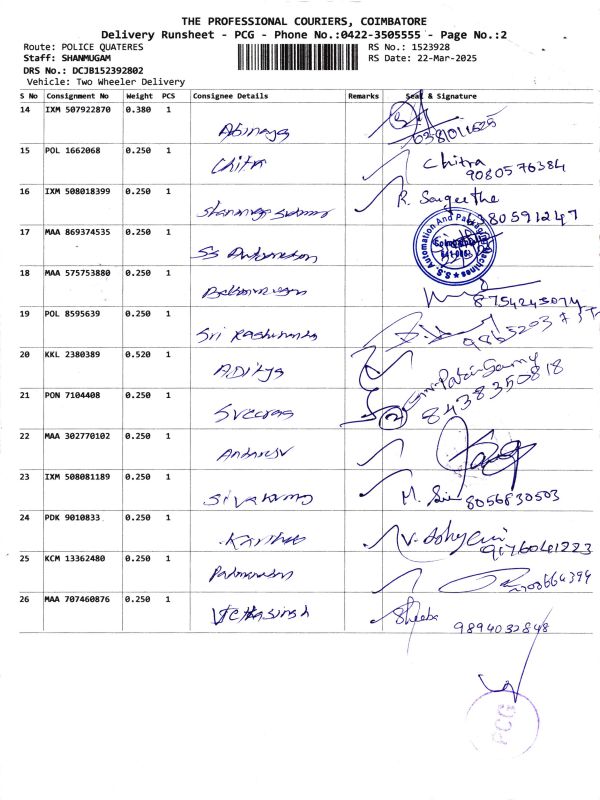 THE PROFESSIONAL COURIERS, COIMBATORE
Delivery Runsheet - PCG - Phone No.:0422-3505555 - Page No.:2
Route: POLICE QUATERES RS No.: 1523928
Staff: SHANMUGAM RS Date: 22-Mar-2025
DRS No.: DCJB152392802
Vehicle: Two Wheeler Delivery
S No Consignment No Weight PCS Consignee Details Remarks Seal & Signature
14 IXM 507922870 0.380 1
Abinaya
15 POL 1662068 0.250 1
Chitra Chitra
9080576384
16 IXM 508018399 0.250 1
R. Sangeetha
17 MAA 869374535 0.250 1
SS Automation
S.S. Automation And Packaging Machines
Coimbatore
18 MAA 575753880 0.250 1
8754245074
19 POL 8595639 0.250 1
Sri
20 KKL 2380389 0.520 1
Aditya
8438350818
21 PON 7104408 0.250 1
22 MAA 302770102 0.250 1
23 IXM 508081189 0.250 1
8056830503
24 PDK 9010833 0.250 1
25 KCM 13362480 0.250 1
26 MAA 707460876 0.250 1
Sheeba
9894032848
PCG